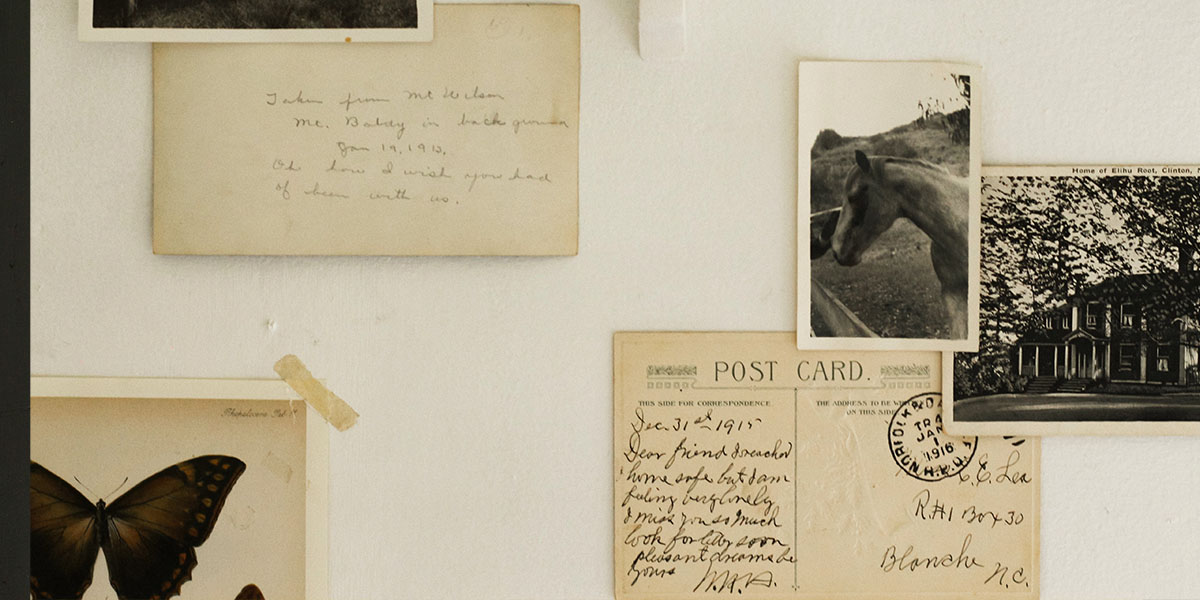 Taken from Mt Wilson
Mt. Baldy in back ground
Jan 19, 1913.
Oh how I wish you had
of been with us.
Home of Elihu Root, Clinton, N
POST CARD.
THIS SIDE FOR CORRESPONDENCE
THE ADDRESS TO BE
ON THIS SIDE
Dec. 31st 1915
Dear friend I reached
home safe but I am
feling very lonely
I miss you so much
look for letter soon
pleasant dreams be
yours
NORFOLK
TR
JAN
1
1916
R.P.O.
C. E. Lea
R.#1 Box 30
Blanche
N.C.